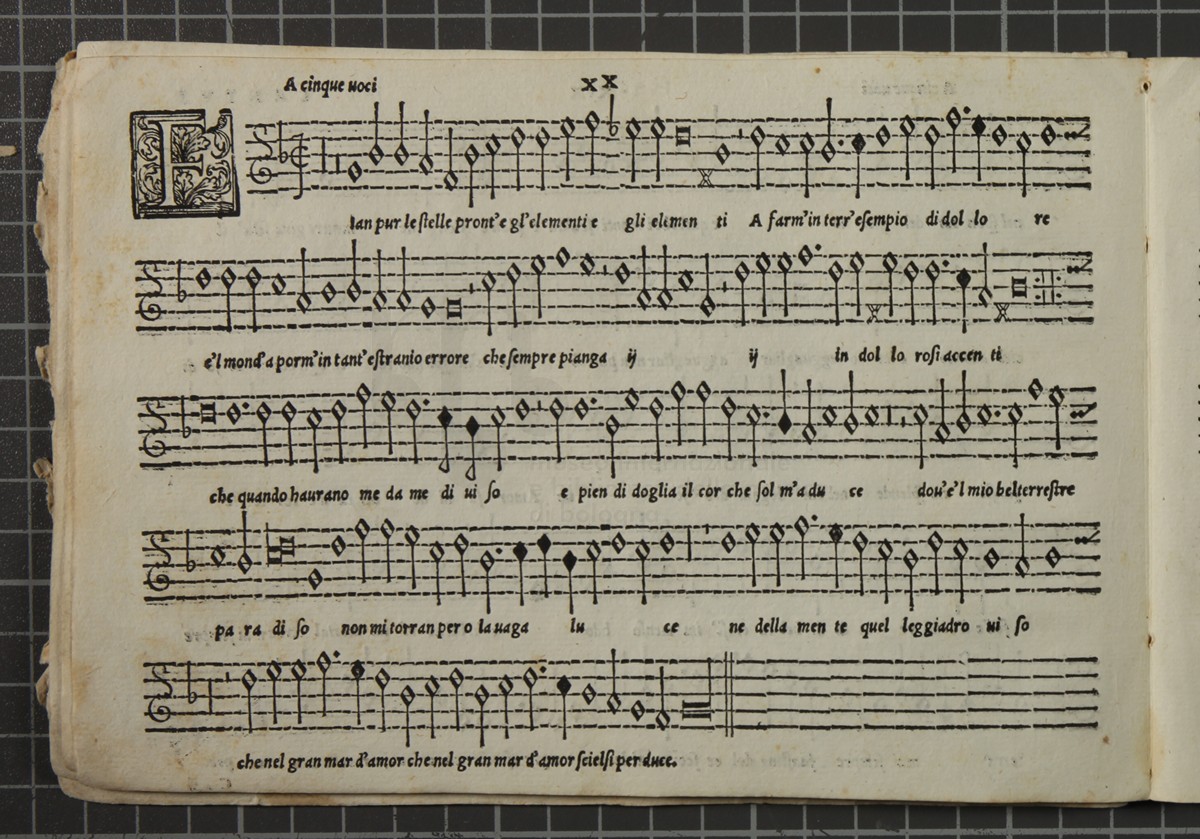 A cinque uoci XX
F Ian pur le ſtelle pront'e gl'elementi e gli elemen ti A farm'in terr'eſempio di dol lo re
e'l mond'a porm'in tant'eſtranio errore che ſempre pianga ij ij In dol lo roſi accen ti
che quando haurano me da me di ui ſo e pien di doglia il cor che ſol m'a du ce dou'e'l mio bel terreſtre
pa ra di ſo non mi torran pero la uaga lu ce ne della men te quel leggiadro ui ſo
che nel gran mar d'amor che nel gran mar d'amor ſcielſi per duce.